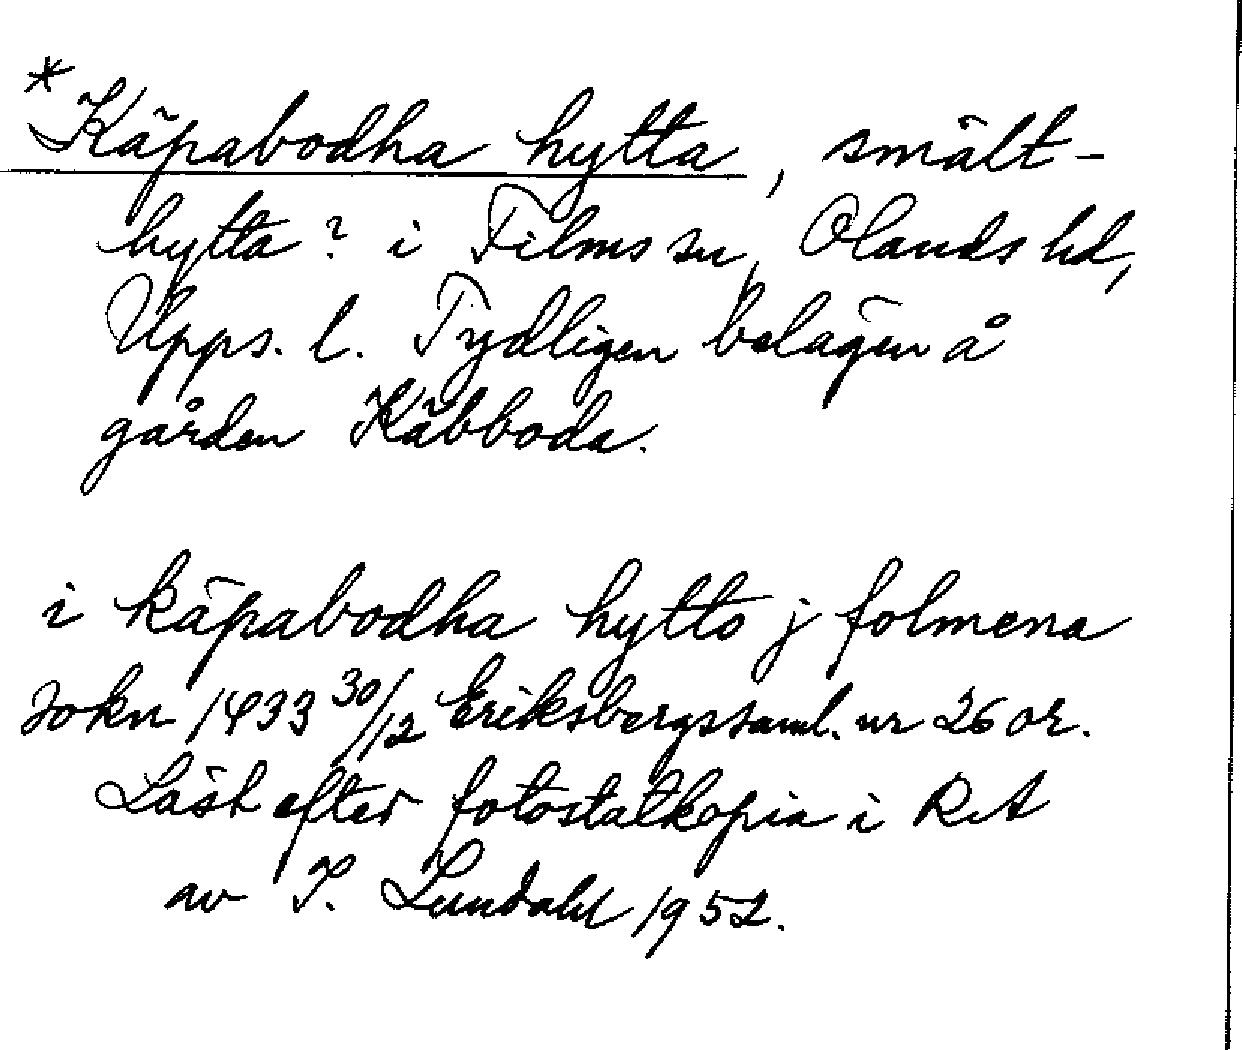 *Käpabodha hytta, smält-
hytta? i Films sn, Olands hd,
Upps. l. Tydligen belägen å
gården Käbboda.
i käpabodha hytto j folmena
sokn 1433 30/12 Eriksbergssaml. nr 26 or.
Läst efter fotostatkopia i RA
av I. Lundahl 1952.